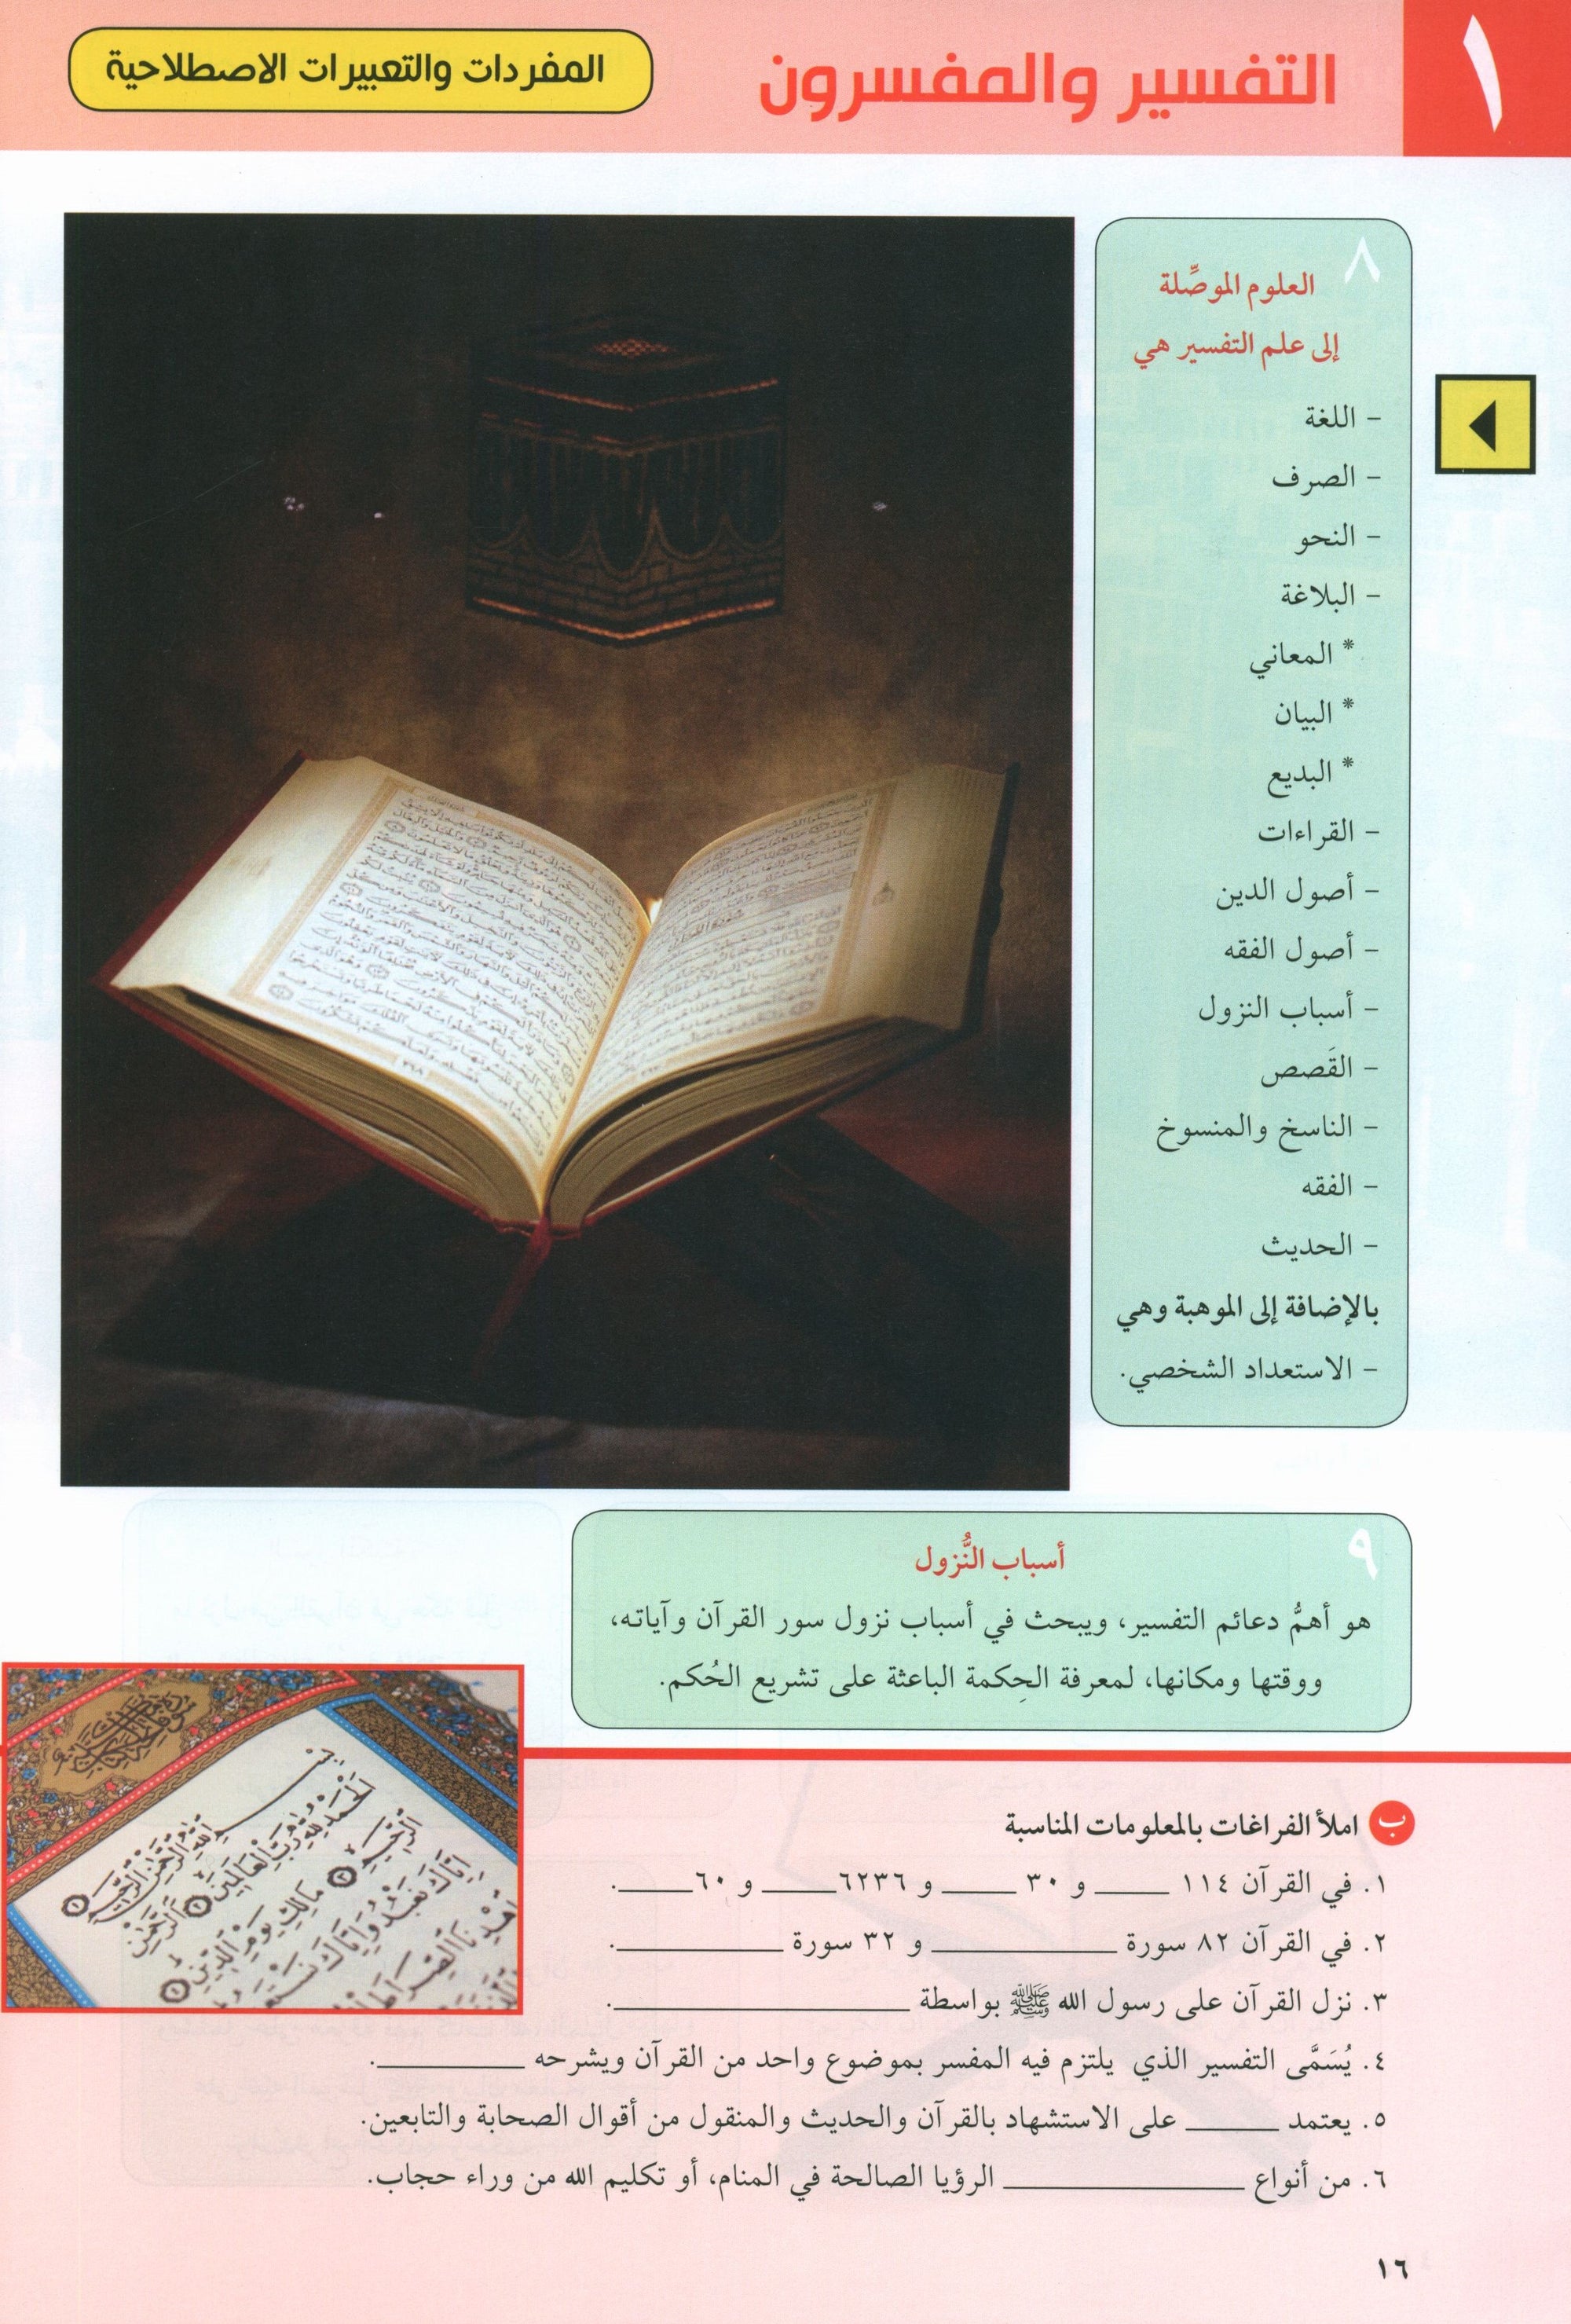 ١
التفسير والمفسرون
المفردات والتعبيرات الاصطلاحية
٨
العلوم الموصِّلة
إلى علم التفسير هي
– اللغة
– الصرف
– النحو
– البلاغة
* المعاني
* البيان
* البديع
– القراءات
– أصول الدين
– أصول الفقه
– أسباب النزول
– القَصص
– الناسخ والمنسوخ
– الفقه
– الحديث
بالإضافة إلى الموهبة وهي
– الاستعداد الشخصي.
٩
أسباب النُّزول
هو أهمُّ دعائم التفسير، ويبحث في أسباب نزول سور القرآن وآياته،
ووقتها ومكانها، لمعرفة الحِكمة الباعثة على تشريع الحُكم.
ب املأ الفراغات بالمعلومات المناسبة
١. في القرآن ١١٤ _____ و ٣٠ _____ و ٦٢٣٦_____ و ٦٠_____.
٢. في القرآن ٨٢ سورة ____________ و ٣٢ سورة ___________.
٣. نزل القرآن على رسول الله ﷺ بواسطة ____________________.
٤. يُسَمَّى التفسير الذي يلتزم فيه المفسر بموضوع واحد من القرآن ويشرحه __________.
٥. يعتمد ______ على الاستشهاد بالقرآن والحديث والمنقول من أقوال الصحابة والتابعين.
٦. من أنواع ________________ الرؤيا الصالحة في المنام، أو تكليم الله من وراء حجاب.
بسم الله الرحمن الرحيم
الحمد لله رب العالمين الرحمن
الرحيم مالك يوم الدين
إياك نعبد وإياك نستعين
اهدنا الصراط
١٦